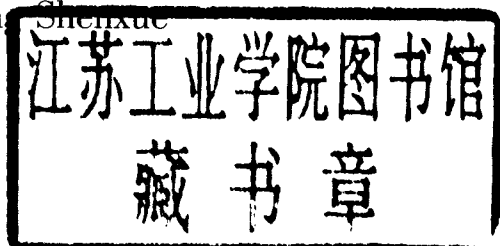 Shenxue
江苏工业学院图书馆
藏书章